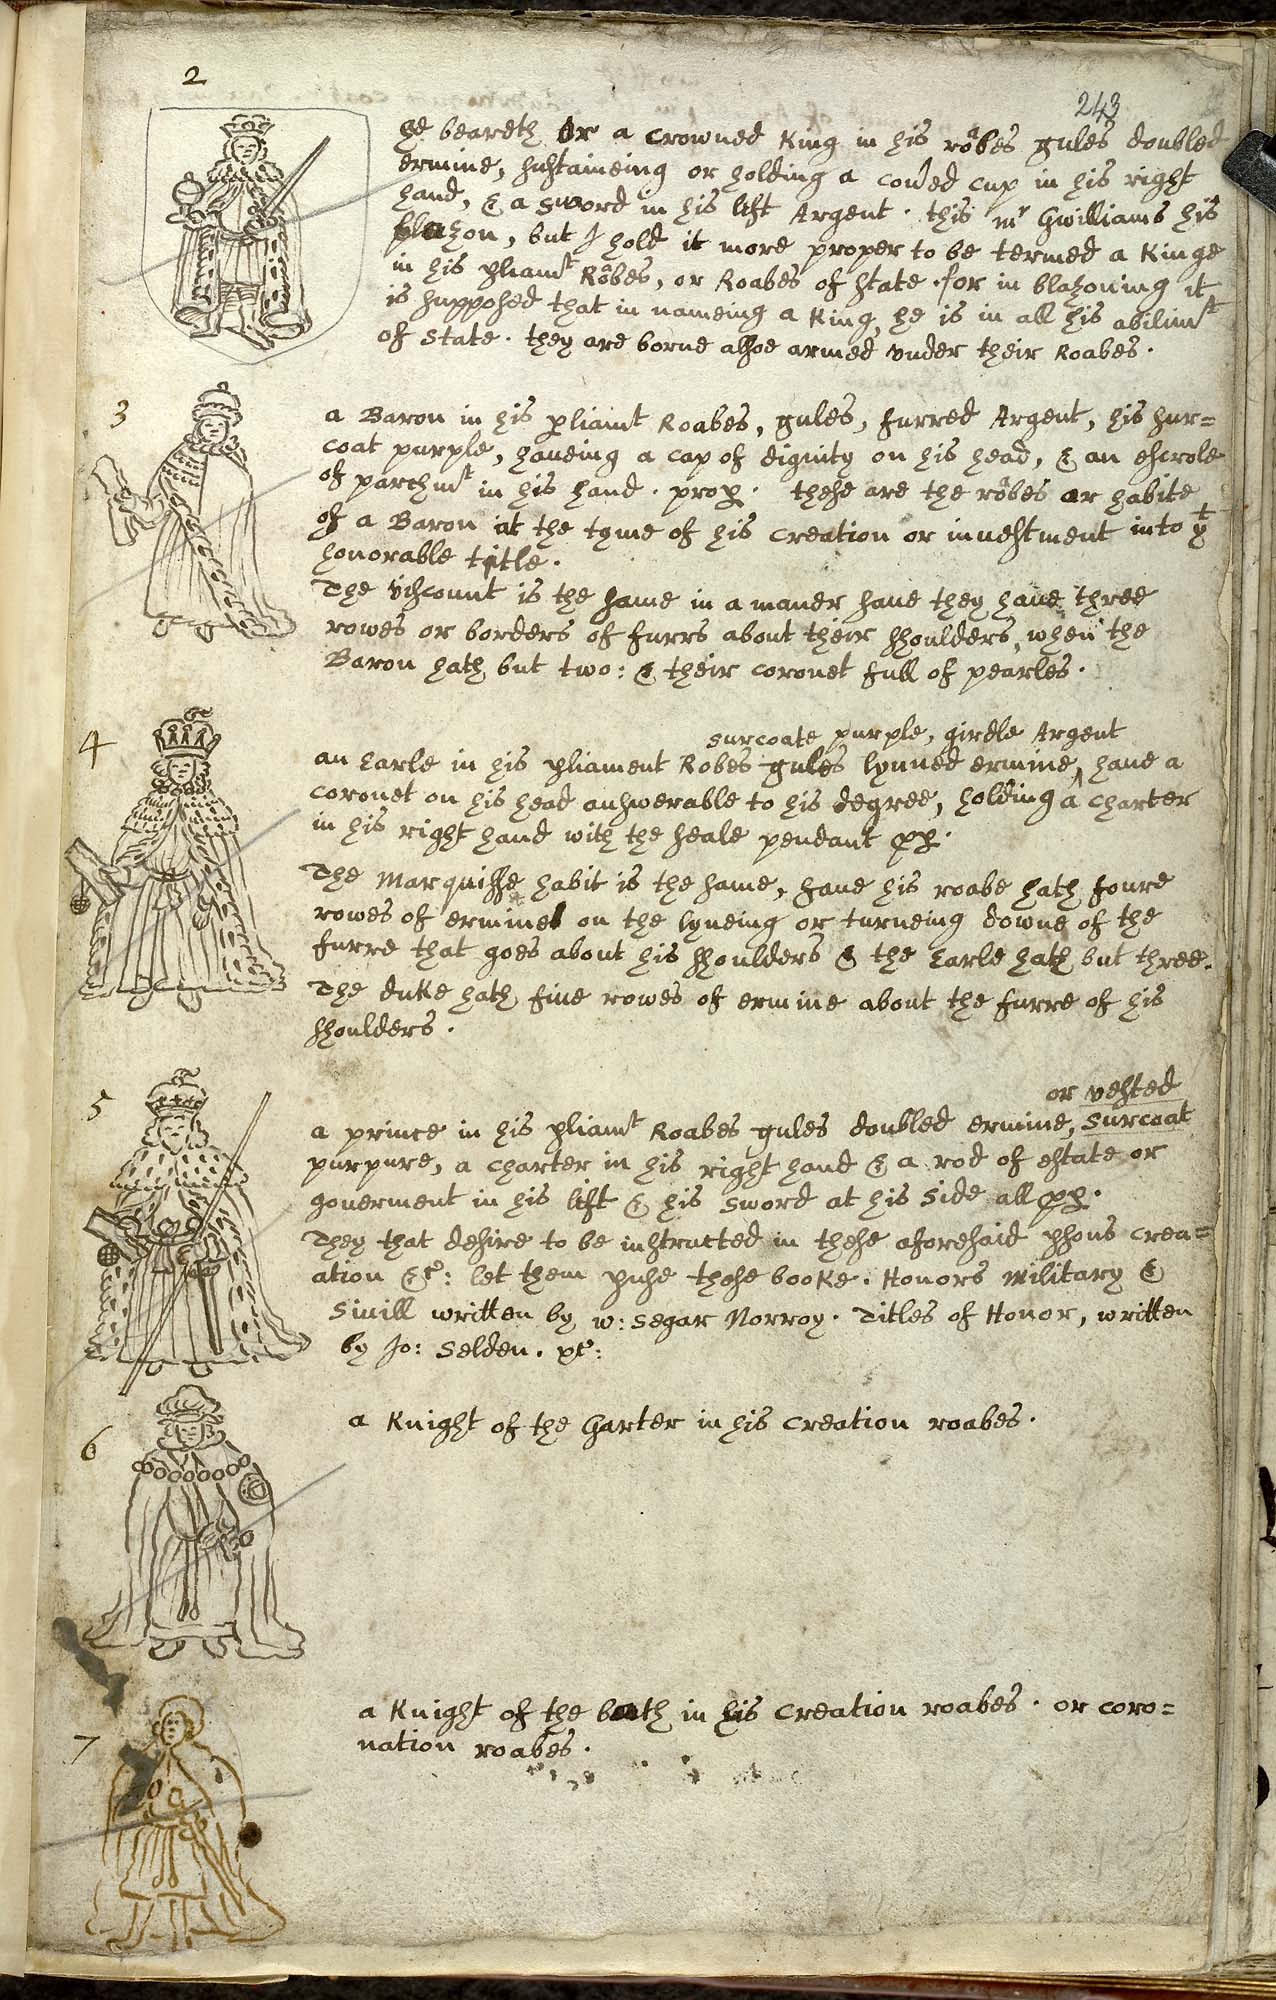 2
243
he beareth Or a Crowned King in his rôbes gules doubled
ermine, sustaineing or holding a coũed cup in his right
hand, & a sword in his lift Argent. this mʳ Gwilliams his
blazon, but I hold it more proper to be termed a Kinge
in his pliamᵗ Rôbes, or Roabes of state. for in blazoning it
is supposed that in nameing a King, he is in all his abilimᵗ
of state. they are borne allsoe armed vnder their Roabes.
3
a Baron in his pliamt Roabes, gules, furred Argent, his sur=
coat purple, haueing a cap of dignity on his head, & an escrole
of parchmᵗ in his hand. prop. these are the rôbes or habite
of a Baron at the tyme of his creation or inuestment into yᵗ
honorable title.
The viscount is the same in a maner saue they haue three
rowes or borders of furrs about their shoulders, when the
Baron hath but two: & their coronet full of pearles.
4
surcoate purple, girdle Argent
an Earle in his pliament Robes gules lynned ermine, haue a
coronet on his head answerable to his degree, holding a charter
in his right hand with the seale pendant pp.
The Marquisse habit is the same, saue his roabe hath foure
rowes of ermines on the lyneing or turneing downe of the
furre that goes about his shoulders & the Earle hath but three.
The duke hath fiue rowes of ermine about the furre of his
shoulders.
5
or vested
a prince in his pliamᵗ Roabes gules doubled ermine, surcoat
purpure, a charter in his right hand & a rod of estate or
gouerment in his lift & his sword at his side all pp.
They that desire to be instructed in these aforesaid psons crea=
ation &c: let them puse these booke. Honors Military &
Siuill written by w: Segar Norroy. Titles of Honor, written
by Jo: Selden. &c:
6
a Knight of the Garter in his creation roabes.
7
a Knight of the bath in his creation roabes. or coro=
nation roabes.